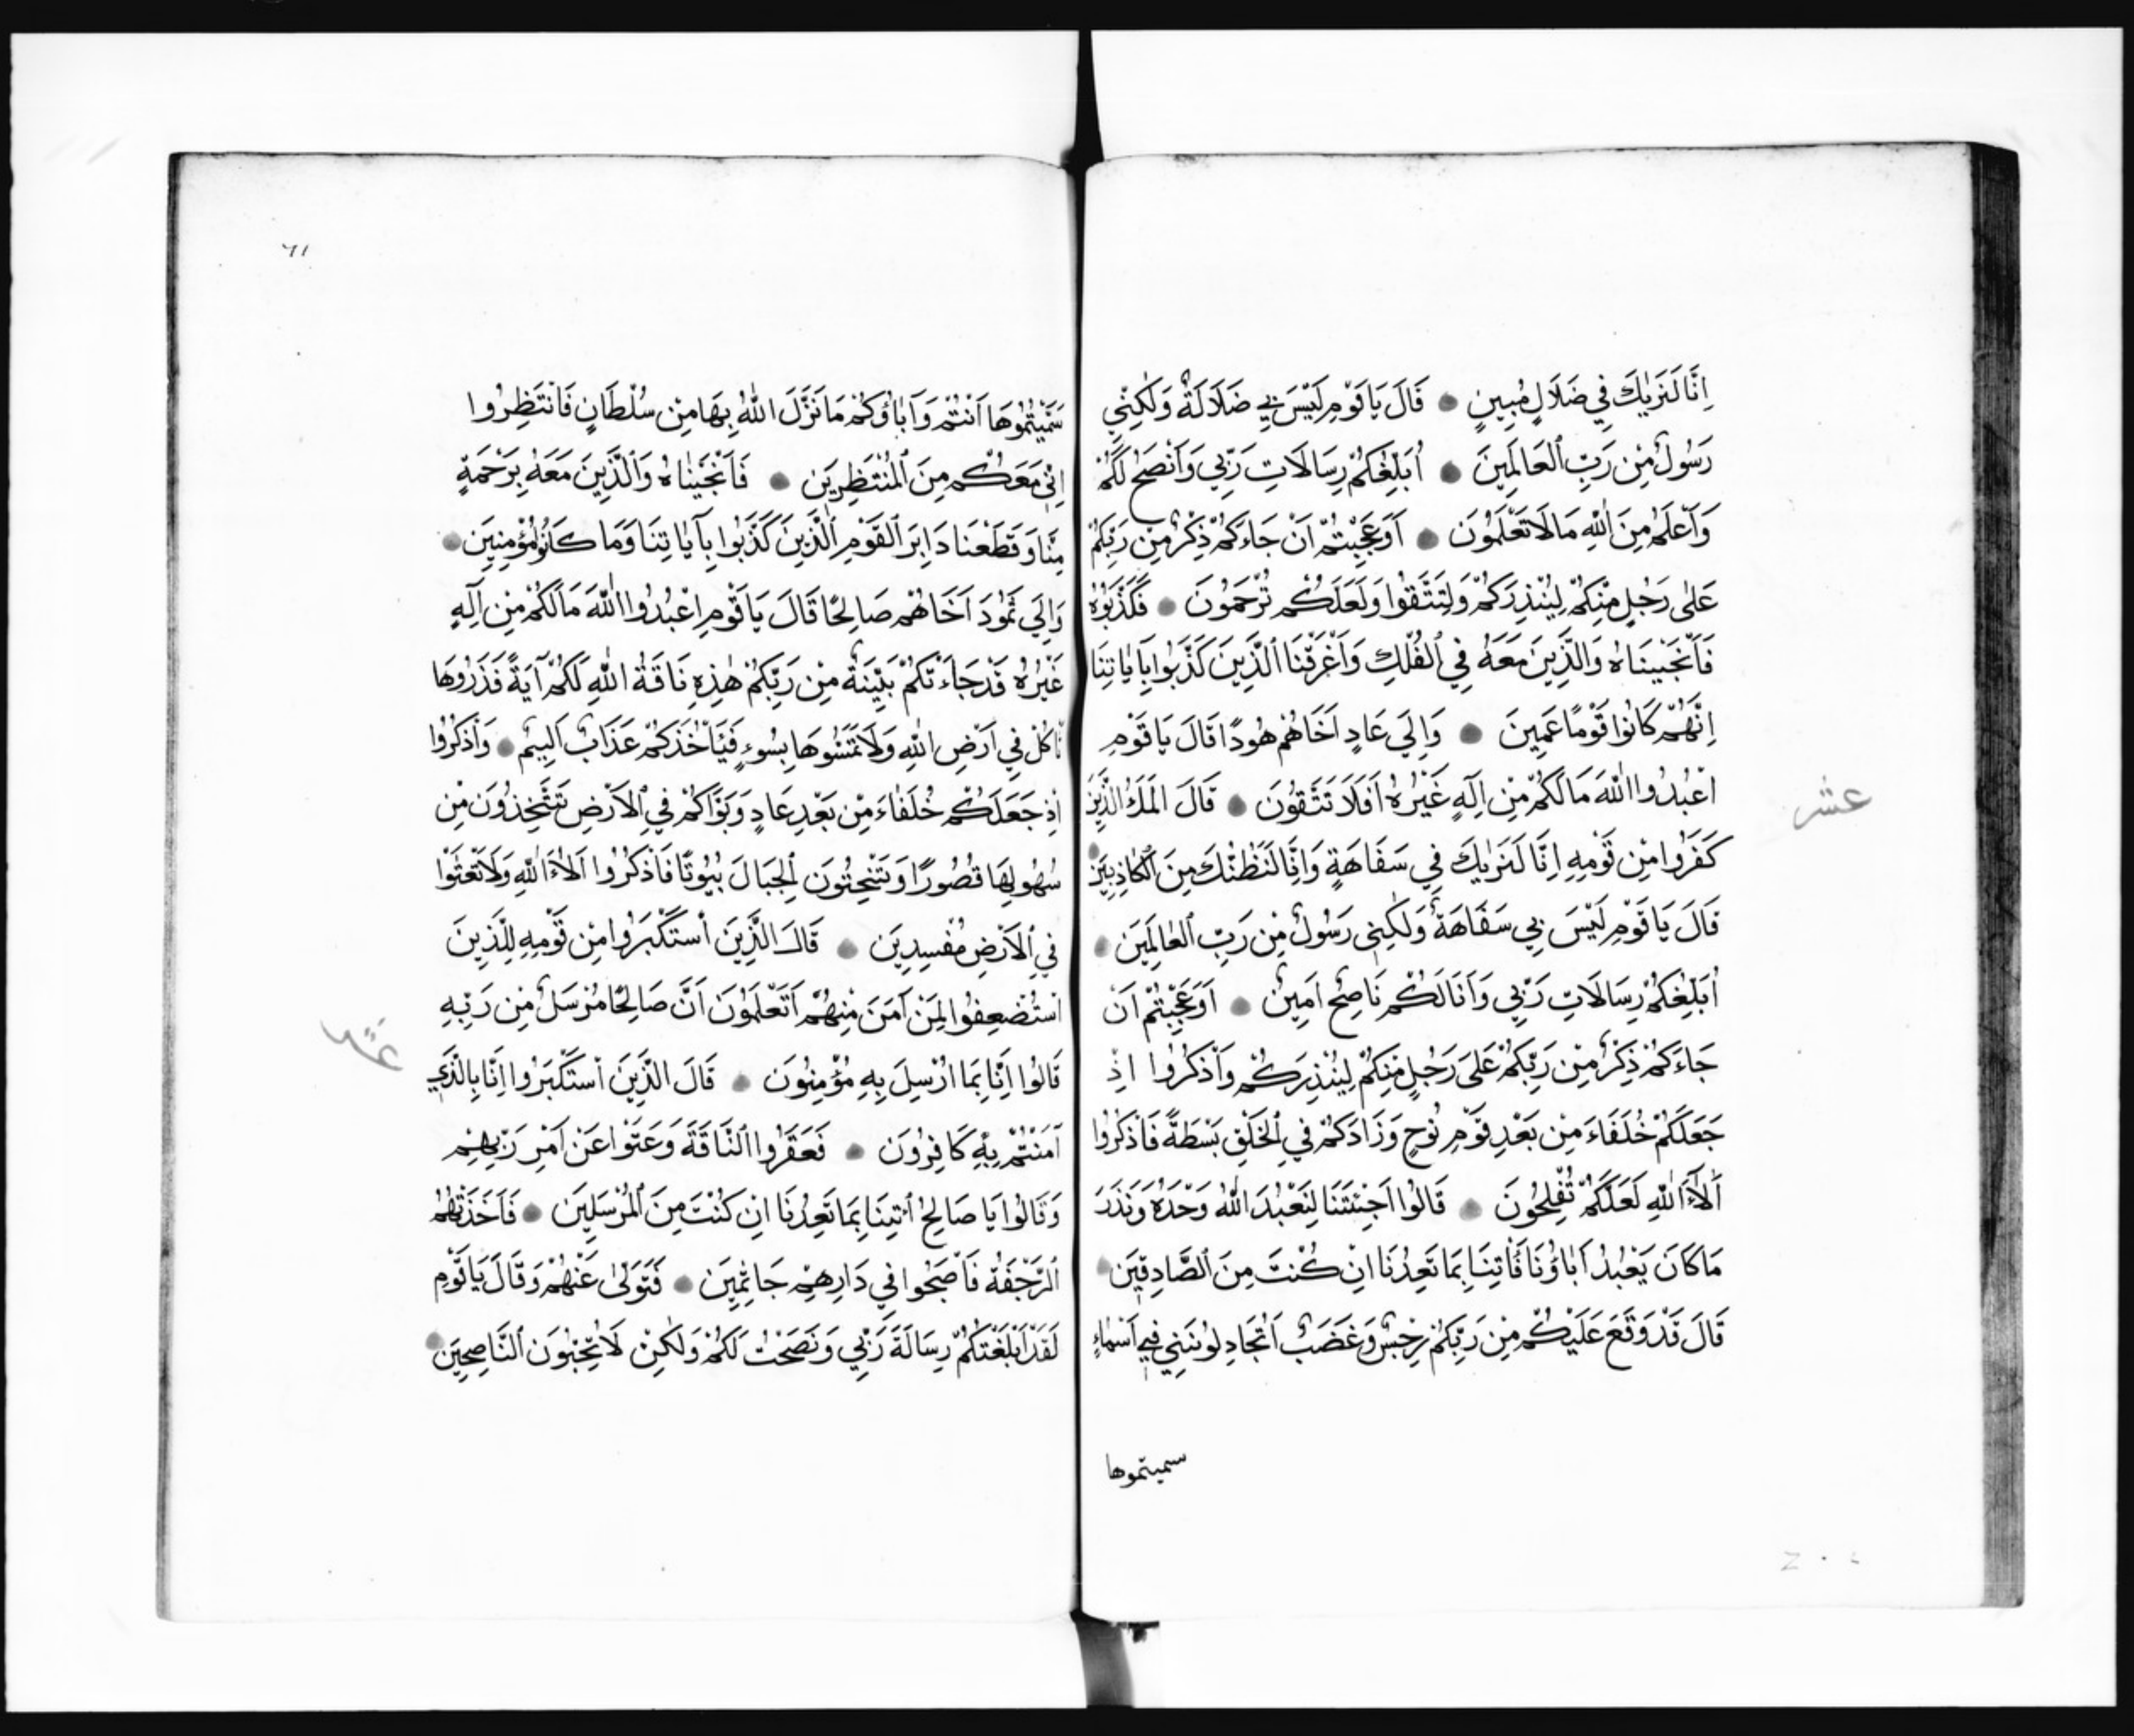 اِنَّا لَنَرٰيكَ فِي ضَلَالٍ مُبِينٍ قَالَ يَا قَوْمِ لَيْسَ بِي ضَلَالَةٌ وَلٰكِنِّي
رَسُولٌ مِنْ رَبِّ الْعَالَمِينَ اُبَلِّغُكُمْ رِسَالَاتِ رَبِّي وَاَنْصَحُ لَكُمْ
وَاَعْلَمُ مِنَ اللّٰهِ مَا لَا تَعْلَمُونَ اَوَعَجِبْتُمْ اَنْ جَاءَكُمْ ذِكْرٌ مِنْ رَبِّكُمْ
عَلٰى رَجُلٍ مِنْكُمْ لِيُنْذِرَكُمْ وَلِتَتَّقُوا وَلَعَلَّكُمْ تُرْحَمُونَ فَكَذَّبُوهُ
فَاَنْجَيْنَاهُ وَالَّذِينَ مَعَهُ فِي الْفُلْكِ وَاَغْرَقْنَا الَّذِينَ كَذَّبُوا بِاٰيَاتِنَا
اِنَّهُمْ كَانُوا قَوْمًا عَمِينَ وَاِلَي عَادٍ اَخَاهُمْ هُودًا قَالَ يَا قَوْمِ
اعْبُدُوا اللّٰهَ مَا لَكُمْ مِنْ اِلٰهٍ غَيْرُهُ اَفَلَا تَتَّقُونَ قَالَ الْمَلَأُ الَّذِينَ
عشر
كَفَرُوا مِنْ قَوْمِهِ اِنَّا لَنَرٰيكَ فِي سَفَاهَةٍ وَاِنَّا لَنَظُنُّكَ مِنَ الْكَاذِبِينَ
قَالَ يَا قَوْمِ لَيْسَ بِي سَفَاهَةٌ وَلٰكِنِّي رَسُولٌ مِنْ رَبِّ الْعَالَمِينَ
اُبَلِّغُكُمْ رِسَالَاتِ رَبِّي وَاَنَا لَكُمْ نَاصِحٌ اَمِينٌ اَوَعَجِبْتُمْ اَنْ
جَاءَكُمْ ذِكْرٌ مِنْ رَبِّكُمْ عَلَى رَجُلٍ مِنْكُمْ لِيُنْذِرَكُمْ وَاذْكُرُوا اِذْ
جَعَلَكُمْ خُلَفَاءَ مِنْ بَعْدِ قَوْمِ نُوحٍ وَزَادَكُمْ فِي الْخَلْقِ بَسْطَةً فَاذْكُرُوا
اٰلَاءَ اللّٰهِ لَعَلَّكُمْ تُفْلِحُونَ قَالُوا اَجِئْتَنَا لِنَعْبُدَ اللّٰهَ وَحْدَهُ وَنَذَرَ
مَا كَانَ يَعْبُدُ اٰبَاؤُنَا فَأْتِنَا بِمَا تَعِدُنَا اِنْ كُنْتَ مِنَ الصَّادِقِينَ
قَالَ قَدْ وَقَعَ عَلَيْكُمْ مِنْ رَبِّكُمْ رِجْسٌ وَغَضَبٌ اَتُجَادِلُونَنِي فِي اَسْمَاءٍ
سميتموها
٦١
سَمَّيْتُمُوهَا اَنْتُمْ وَاٰبَاؤُكُمْ مَا نَزَّلَ اللّٰهُ بِهَا مِنْ سُلْطَانٍ فَانْتَظِرُوا
اِنِّي مَعَكُمْ مِنَ الْمُنْتَظِرِينَ فَاَنْجَيْنَاهُ وَالَّذِينَ مَعَهُ بِرَحْمَةٍ
مِنَّا وَقَطَعْنَا دَابِرَ الْقَوْمِ الَّذِينَ كَذَّبُوا بِاٰيَاتِنَا وَمَا كَانُوا مُؤْمِنِينَ
وَاِلَي ثَمُودَ اَخَاهُمْ صَالِحًا قَالَ يَا قَوْمِ اعْبُدُوا اللّٰهَ مَا لَكُمْ مِنْ اِلٰهٍ
غَيْرُهُ قَدْ جَاءَتْكُمْ بَيِّنَةٌ مِنْ رَبِّكُمْ هٰذِهِ نَاقَةُ اللّٰهِ لَكُمْ اٰيَةً فَذَرُوهَا
تَأْكُلْ فِي اَرْضِ اللّٰهِ وَلَا تَمَسُّوهَا بِسُوءٍ فَيَأْخُذَكُمْ عَذَابٌ اَلِيمٌ وَاذْكُرُوا
اِذْ جَعَلَكُمْ خُلَفَاءَ مِنْ بَعْدِ عَادٍ وَبَوَّاَكُمْ فِي الْاَرْضِ تَتَّخِذُونَ مِنْ
سُهُولِهَا قُصُورًا وَتَنْحِتُونَ الْجِبَالَ بُيُوتًا فَاذْكُرُوا اٰلَاءَ اللّٰهِ وَلَا تَعْثَوْا
فِي الْاَرْضِ مُفْسِدِينَ قَالَ الَّذِينَ اسْتَكْبَرُوا مِنْ قَوْمِهِ لِلَّذِينَ
اسْتُضْعِفُوا لِمَنْ اٰمَنَ مِنْهُمْ اَتَعْلَمُونَ اَنَّ صَالِحًا مُرْسَلٌ مِنْ رَبِّهِ
عشر
قَالُوا اِنَّا بِمَا اُرْسِلَ بِهِ مُؤْمِنُونَ قَالَ الَّذِينَ اسْتَكْبَرُوا اِنَّا بِالَّذِي
اٰمَنْتُمْ بِهِ كَافِرُونَ فَعَقَرُوا النَّاقَةَ وَعَتَوْا عَنْ اَمْرِ رَبِّهِمْ
وَقَالُوا يَا صَالِحُ ائْتِنَا بِمَا تَعِدُنَا اِنْ كُنْتَ مِنَ الْمُرْسَلِينَ فَاَخَذَتْهُمُ
الرَّجْفَةُ فَاَصْبَحُوا فِي دَارِهِمْ جَاثِمِينَ فَتَوَلّٰى عَنْهُمْ وَقَالَ يَا قَوْمِ
لَقَدْ اَبْلَغْتُكُمْ رِسَالَةَ رَبِّي وَنَصَحْتُ لَكُمْ وَلٰكِنْ لَا تُحِبُّونَ النَّاصِحِينَ